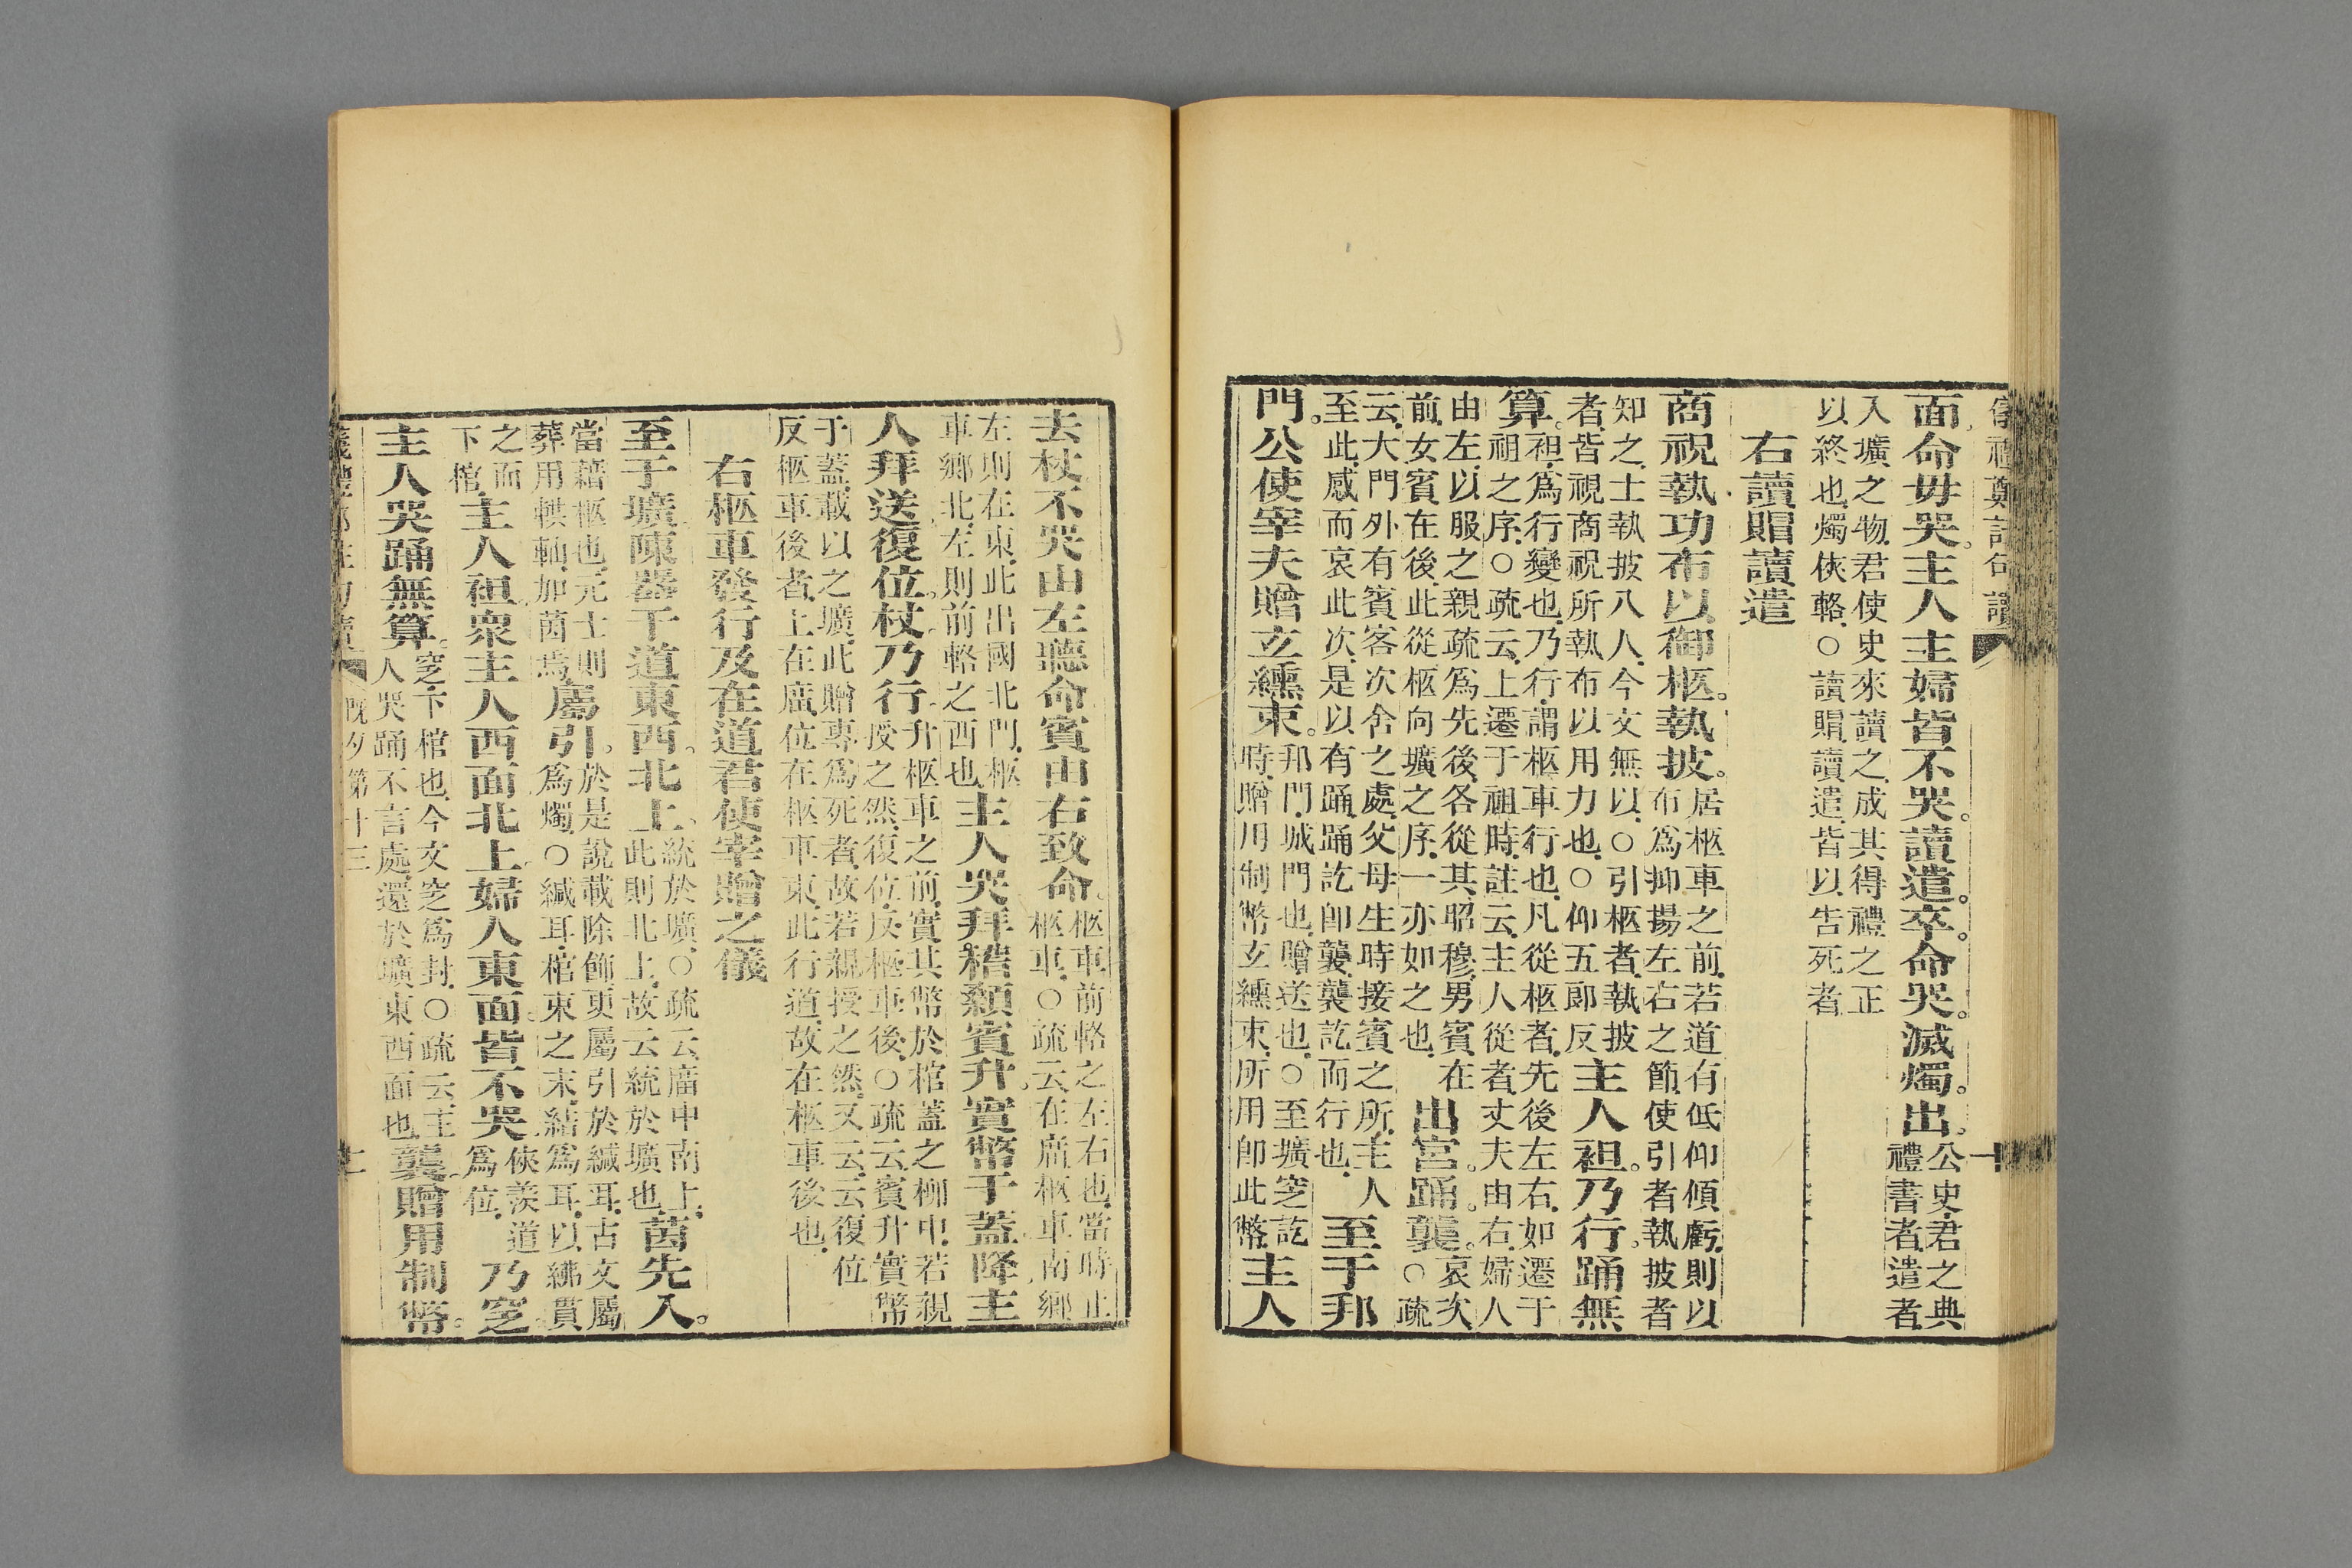 儀禮鄭註句讀 十
面命毋哭。主人主婦皆不哭。讀遣。卒。命哭。滅燭。出。公史君之典
禮書者遣者
入壙之物君使史來讀之成其得禮之正
以終也燭俠輅○讀賵讀遣皆以告死者
右讀賵讀遣
商祝執功布以御柩。執披。居柩車之前若道有低仰傾虧則以
布爲抑揚左右之節使引者執披者
知之士執披八人今文無以○引柩者執披
者皆視商祝所執布以用力也○仰五郎反主人袒。乃行。踊無
算。袒爲行變也乃行謂柩車行也凡從柩者先後左右如遷于
祖之序○疏云上遷于祖時註云主人從者丈夫由右婦人
由左以服之親疏爲先後各從其昭穆男賓在
前女賓在後此從柩向壙之序一亦如之也出宮。踊。襲。哀次
○疏
云大門外有賓客次舍之處父母生時接賓之所主人
至此感而哀此次是以有踊踊訖卽襲襲訖而行也至于邦
門。公使宰夫贈玄纁束。邦門城門也贈送也○至壙窆訖
時贈用制幣玄纁束所用卽此幣主人
去杖不哭由左聽命賓由右致命。柩車前輅之左右也當時止
柩車○疏云在廟柩車南鄉
左則在東此出國北門柩
車鄉北左則前輅之西也主人哭拜稽顙賓升。實幣于蓋降主
人拜送復位。杖。乃行。升柩車之前實其幣於棺蓋之柳中若親
授之然復位反柩車後○疏云賓升實幣
于蓋載以之壙此贈專爲死者故若親授之然又云云復位
反柩車後者上在廟位在柩車東此行道故在柩車後也
右柩車發行及在道君使宰贈之儀
至于壙陳器于道東西。北上。統於壙○疏云廟中南上
此則北上故云統於壙也茵先入。
當藉柩也元士則
葬用輁軸加茵焉屬引。於是說載除飾更屬引於緘耳古文屬
爲燭○緘耳棺束之末結爲耳以綍貫
之而
下棺主人袒衆主人西面北上婦人東面皆不哭。俠羨道
爲位乃窆
主人哭踊無算。窆下棺也今文窆爲封○疏云主
人哭踊不言處還於壙東西面也襲贈用制幣。
既夕第十三